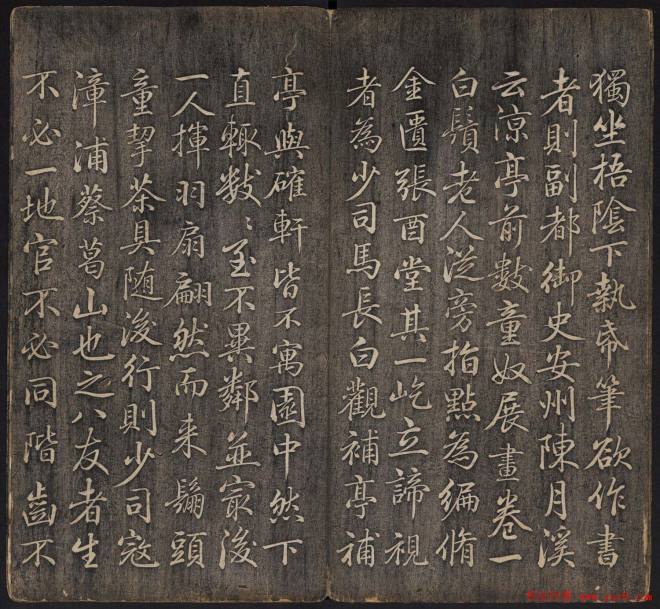 獨坐梧陰下執帋筆欲作書
者則副都御史安州陳月溪
云涼亭前數童奴展畫卷一
白鬚老人従旁指點為編脩
金匱張酉堂其一屹立諦視
者為少司馬長白觀補亭補
亭與確軒皆不寓園中然下
直輒數〻至不異鄰並㝡後
一人揮羽扇翩然而来鬅頭
童挈茶具随後行則少司寇
漳浦蔡葛山也之八友者生
不必一地官不必同階齒不